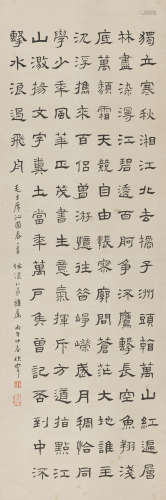 獨立寒秋湘江北去橘子洲頭看萬山紅遍層
林盡染漫江碧透百舸爭流鷹擊長空魚翔淺
底萬類霜天競自由悵寥廓問蒼茫大地誰主
沉浮攜來百侶曾游憶往昔崢嶸歲月稠恰同
學少年風華正茂書生意氣揮斥方遒指點江
山激揚文字糞土當年萬戶侯曾記否到中流
擊水浪遏飛舟
毛主席沁園春一首